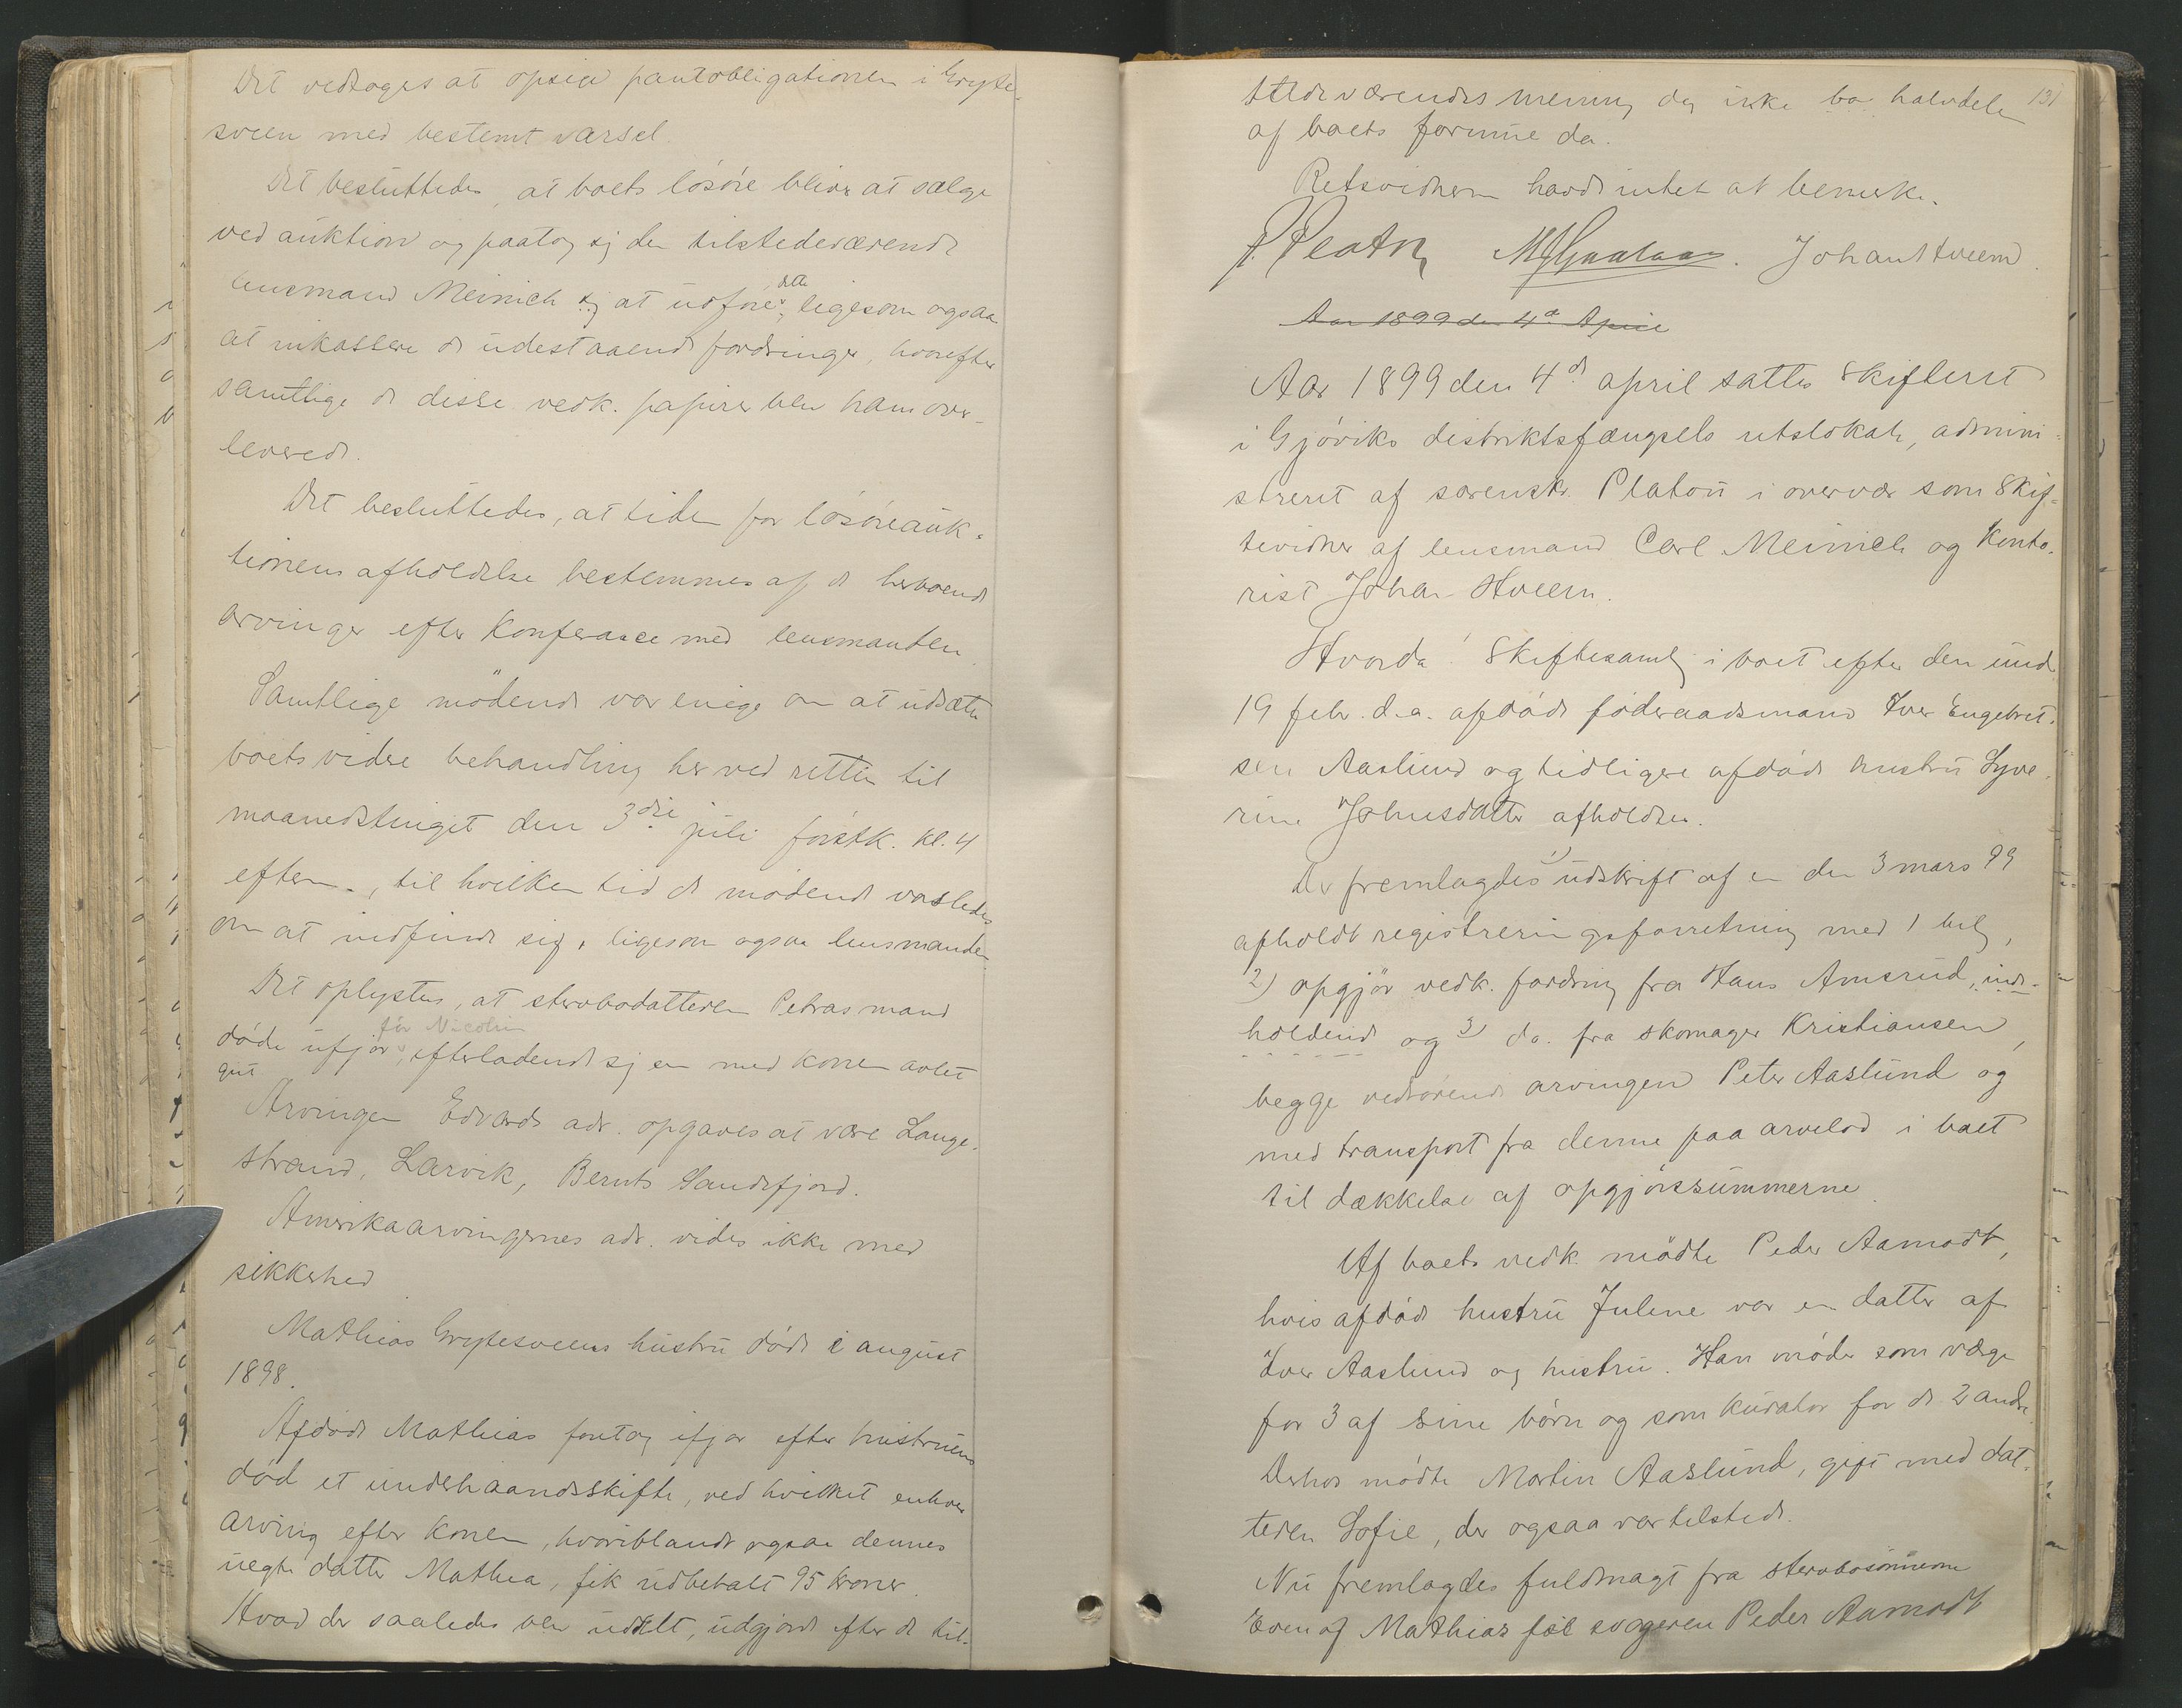 Det vedtoges at opsige pantobligationen i Gryte-
sveen med bestemt varsel.
Det besluttedes, at boets lösöre bliver at sælge
ved auktion og paatog sig den tilstedeværende
lensmand Meinich sig at udføre dette, ligesom ogsaa
at inkassere de udestaaende fordringer, hvorefter
samtlige de disse vedk. papirer blev ham over-
leverede.
Det besluttedes, at tiden for lösöreauk-
tionens afholdelse bestemmes af de herboende
arvinger efter Konferance med lensmanden
Samtlige mödende var enige om at udsætte
boets videre behandling her ved retten til
maanedstinget den 3die juli förstk. kl. 4
efterm., til hvilken tid de mödende varsledes
om at indfinde sig, ligesom ogsaa lensmanden.
Det oplystes, at stervbodatteren Petras mand
för Nicolin
döde ifjor, efterladende sig en med konen avlet
gut
Arvingen Edvards adr. opgaves at være Lange-
strand, Larvik, Bernts Sandefjord.
Amerikaarvingernes adr. vides ikke med
sikkerhed
Mathias Grytesveens hustru döde i august
1898.
Afdöde Mathias foretog ifjor efter hustruens
död et underhaandsskifte, ved hvilket enhver
arving efter konen, hvoriblandt ogsaa dennes
uegte datter Mathea, fik udbetalt 95 kroner.
Hvad der saaledes blev uddelt, udgjorde efter de til-
131
stedeværendes mening dog ikke halvdelen
af boets formue da.
Retsvidnerne havde intet at bemerke.
Platou MJGaalaas. Johan Hveem.
Aar 1899 den 4de April
Aar 1899 den 4de april sattes skifteret
i Gjöviks distriktsfængsels retslokale, admini-
streret af sorenskr. Platou i overvær som skif-
tevidner af lensmand Carl Meinich og Konto-
rist Johan Hveem.
Hvorda! Skiftesamlg i boet efter den und.
19 febr. d.a. afdöde föderaadsmand Iver Engebret-
sen Aaslund og tidligere afdöde hustru Syve-
rine Johnsdatter afholdtes.
Der fremlagdes 1) udskrift af en den 3 mars 99
afholdt registreringsforretning med 1 bilg,
2) opgjör vedk. fordring fra Hans Amsrud, inde-
holdende og 3) do. fra skomager Kristiansen,
begge vedrörende arvingen Peter Aaslund og
med transport fra denne paa arvelod i boet
til dækkelse af opgjörssummerne
Af boets vedk. mödte Peder Aamodt,
hvis afdöde hustru Julene var en datter af
Iver Aaslund og hustru. Han möder som værge
for 3 af sine börn og som kurator for de 2 andre.
Derhos mödte Martin Aaslund, gift med dat-
teren Sofie, der ogsaa var tilstede.
Nu fremlagdes fuldmagt fra stervbosönnerne
Even og Mathias for svogeren Peder Aamodt